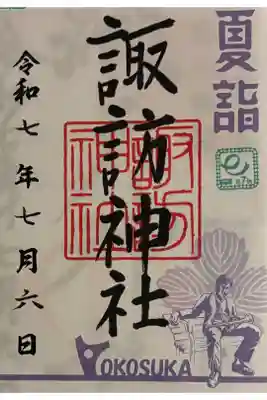 夏詣
諏訪神社
諏訪
神社
令和七年七月六日
YOKOSUKA